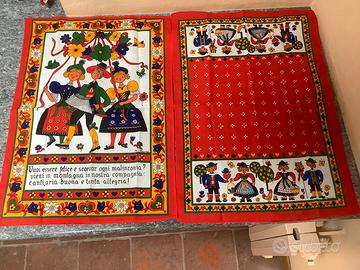 Vuoi essere felice e scordar ogni malinconia?
vieni in montagna in nostra compagnia:
canteria buona e tinta allegria!
SUBITO